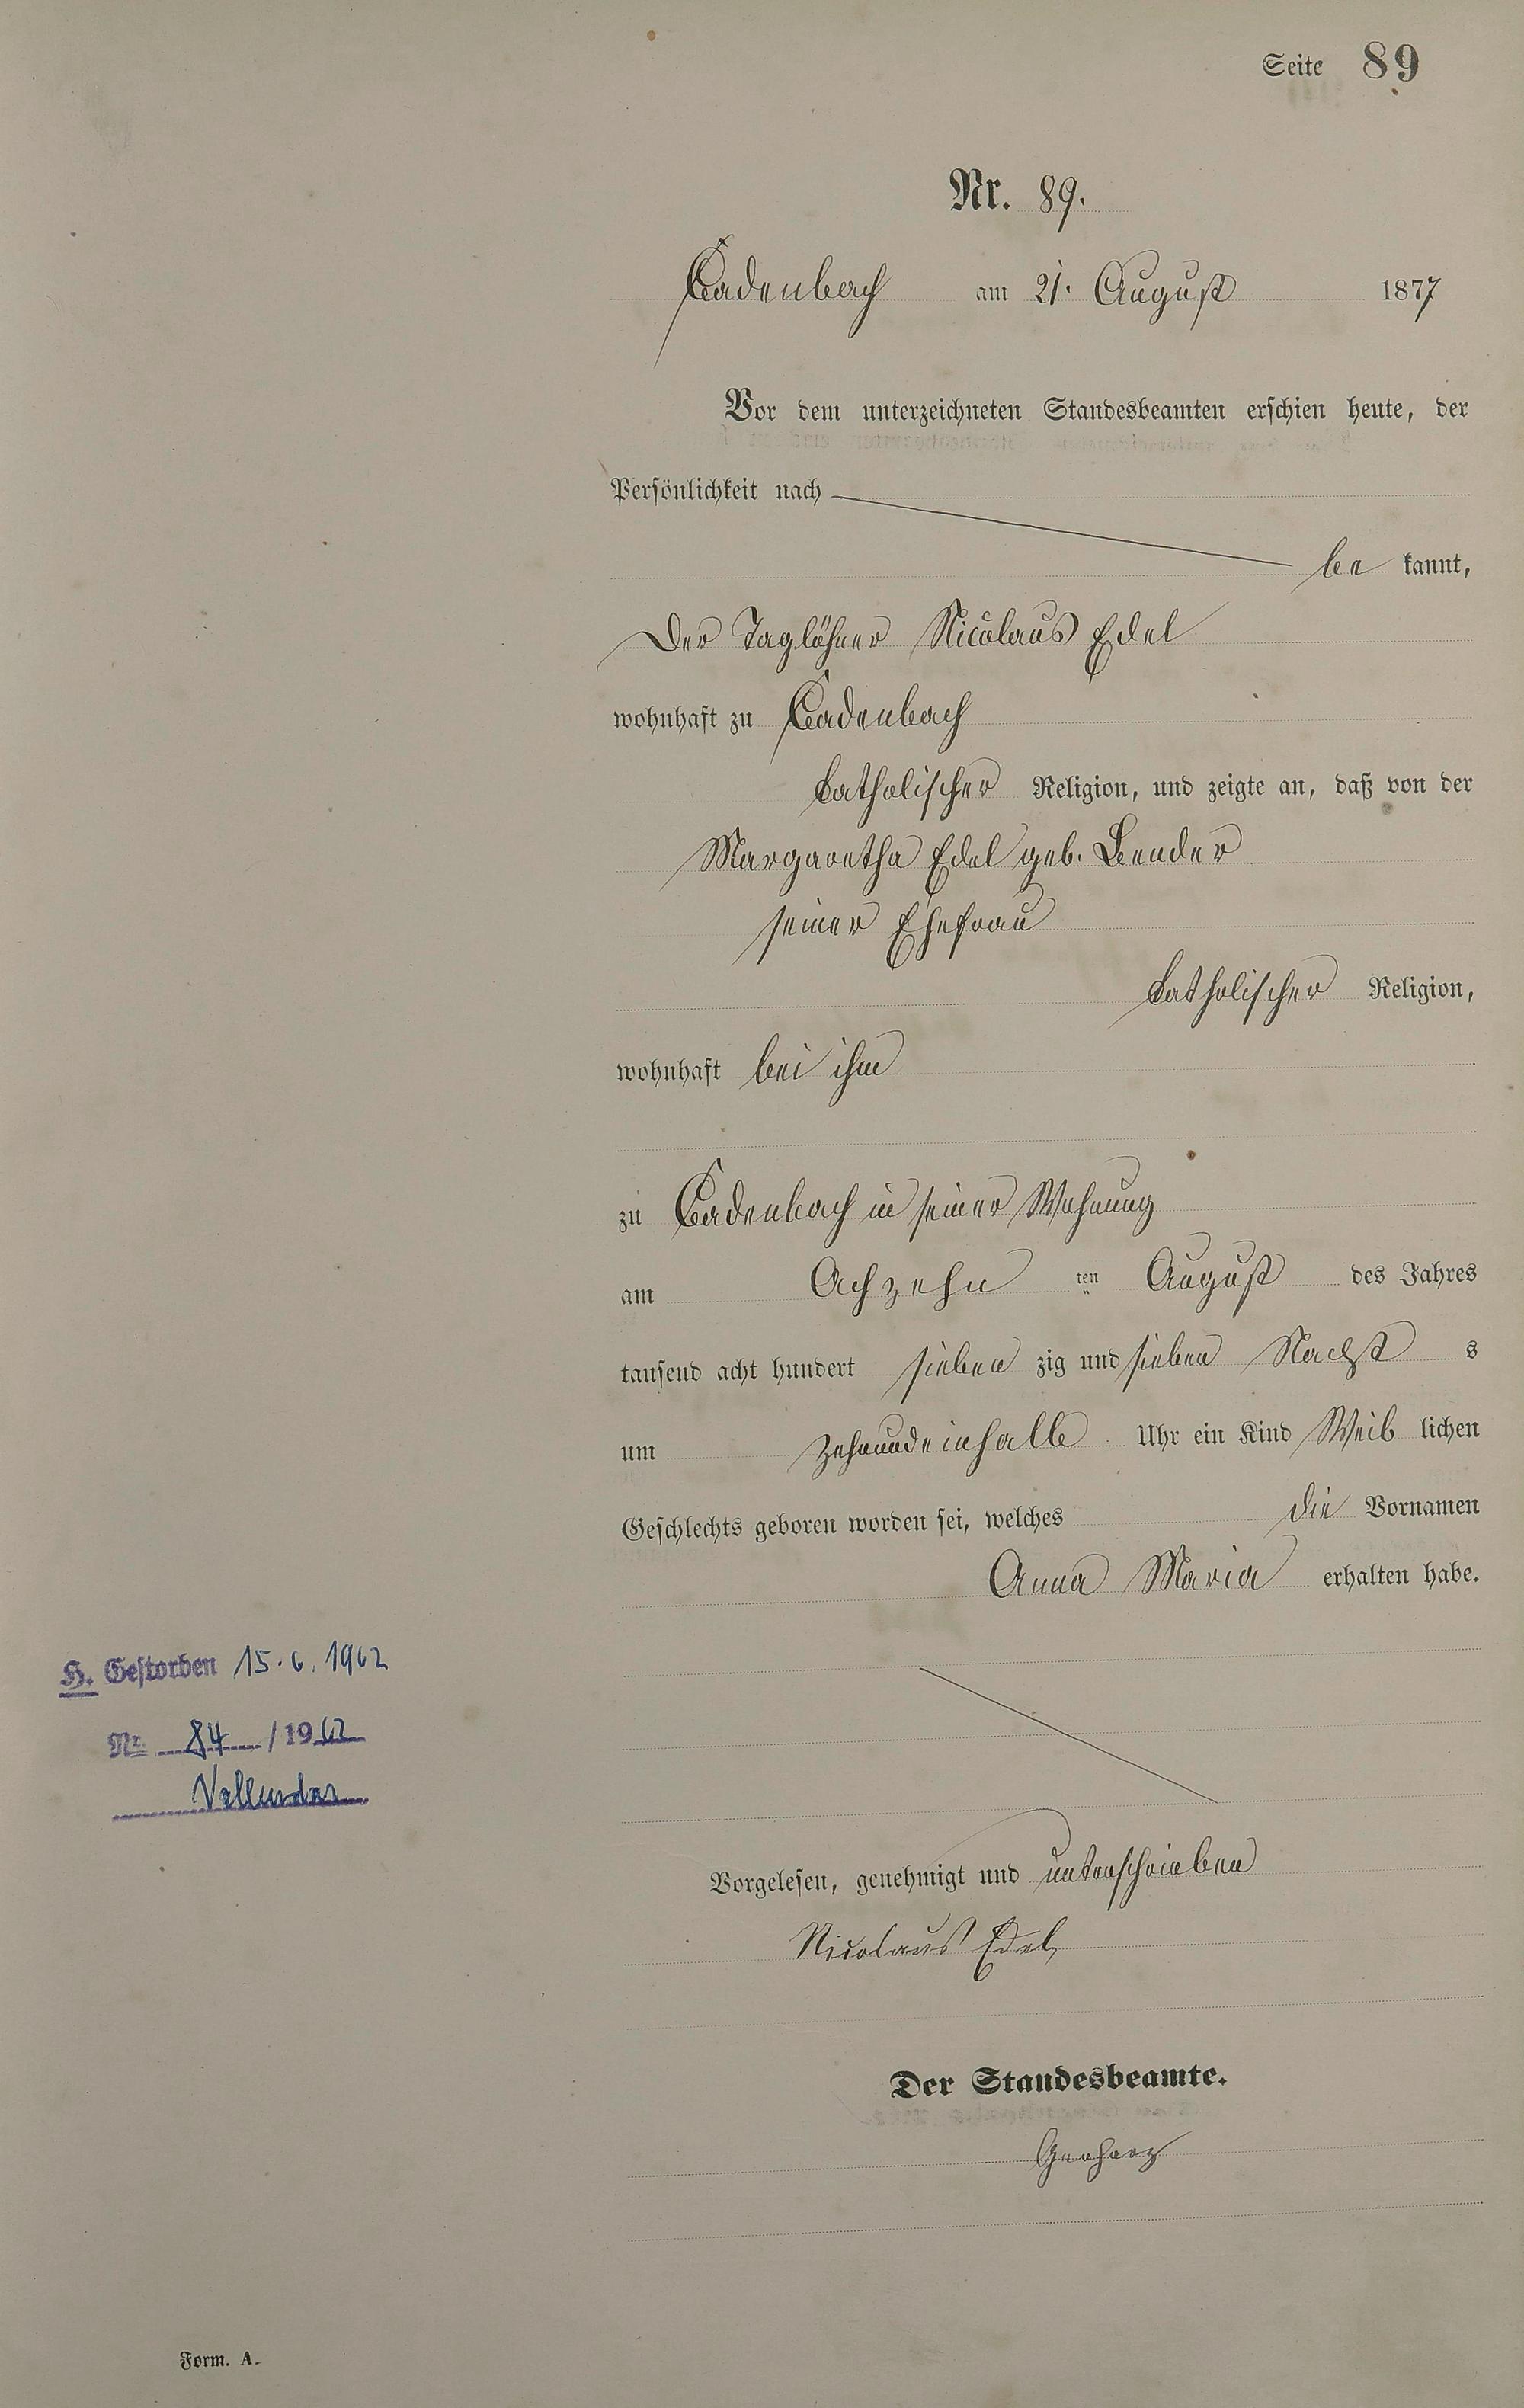 Seite 89
Nr. 89.
Cadenbach am 21. August 1877
Vor dem unterzeichneten Standesbeamten erschien heute, der
Persönlichkeit nach
be kannt,
Der Taglöhner Nicolaus Edel
wohnhaft zu Cadenbach
katholischer Religion, und zeigte an, daß von der
Margaretha Edel geb. Bender
seiner Ehefrau
katholischer Religion,
wohnhaft bei ihm
zu Cadenbach in seiner Wohnung
am Achzehn ten August des Jahres
tausend acht hundert sieben zig und sieben Nachst s
um zehnundeinhalb Uhr ein Kind Weib lichen
Geschlechts geboren worden sei, welches die Vornamen
Anna Maria erhalten habe.
H. Gestorben 15.6.1962
Nr. 84 / 1962
Vallendar
Vorgelesen, genehmigt und unterschrieben
Nicolaus Edel
Der Standesbeamte.
Gerharz
Form. A.